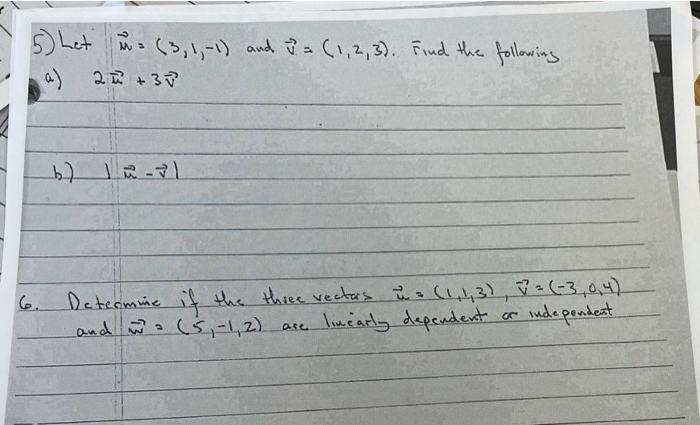 5) Let u⃗ = (3,1,-1) and v⃗ = (1,2,3). Find the following
a) 2u⃗ + 3v⃗
b) |u⃗ - v⃗|
6. Determine if the three vectors u⃗ = (1,1,3), v⃗ = (-3,0,4)
and w⃗ = (5,-1,2) are linearly dependent or independent